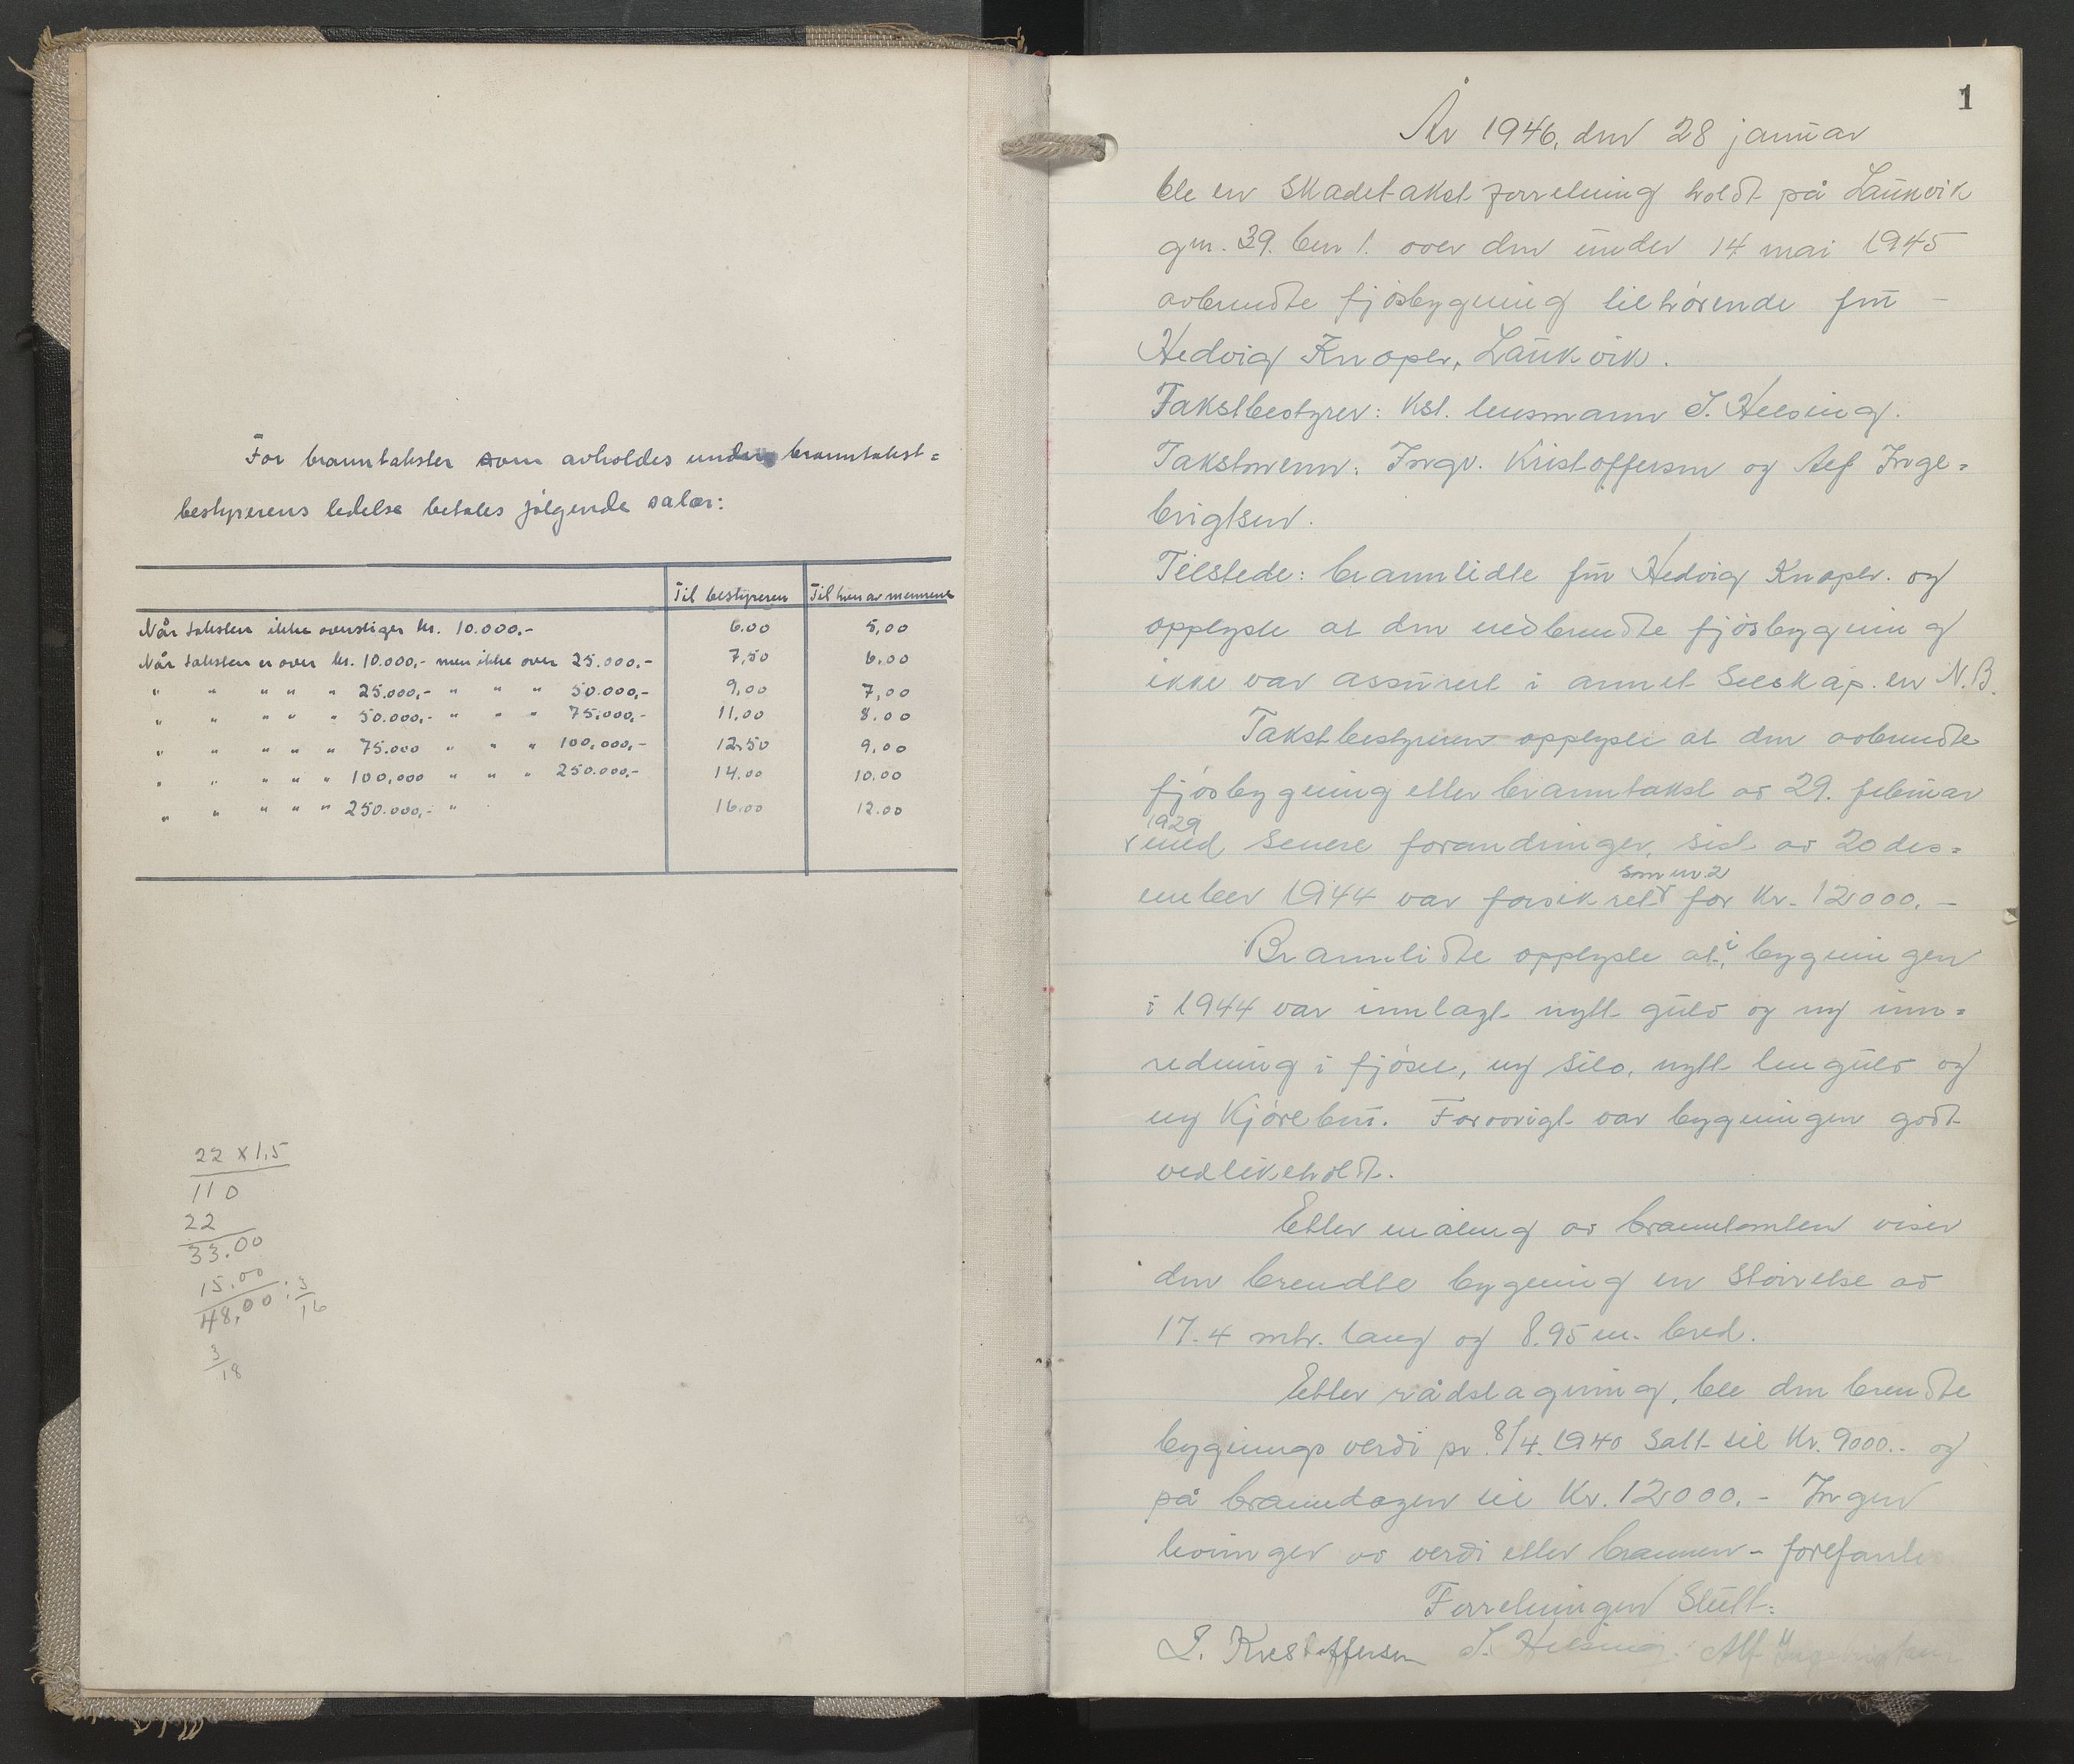 For branntakster som avholdes under branntakst=
bestyrerens ledelse betales følgende salær:
Til bestyreren Til hver av mennene
Når taksten ikke overstiger kr. 10.000,- 6.00 5,00
Når taksten er over kr. 10.000,- men ikke over 25.000,- 7,50 6.00
" " " " " 25.000,- " " " 50.000,- 9,00 7,00
" " " " " 50.000,- " " " 75.000,- 11,00 8.00
" " " " " 75.000 " " " 100,000,- 12,50 9,00
" " " " " 100,000 " " " 250.000,- 14.00 10.00
" " " " " 250.000,- " 16.00 12.00
22 x 1,5
110
22
33.00
15.00
48,00 : 3/16
3/18
1
År 1946, den 28 januar
ble en skadetakst forretning holdt på Laukvik
gnr. 39. bnr 1. over den under 14 mai 1945
avbrendte fjøsbygning tilhørende fru -
Hedvig Knapln, Laukvik.
Takstbestyrer: Kst. lensmann J. Helsing.
Takstmenn: Ingv. Kristoffersen og Alf Inge=
brigtsen.
Tilstede: brannlidte fru Hedvig Knapln. og
opplyste at den nedbrendte fjøsbygning
ikke var assurert i annet Selskap. en N.B.
Takstbestyreren opplyste at den avbrendte
fjøsbygning etter branntakst av 29. februar
1929
v med senere forandringer, sist av 20 des=
som nr. 2
ember 1944 var forsikret v for Kr. 12000.-
Brannlidte opplyste at i bygningen
i 1944 var innlagt nytt gulv og ny inn=
redning i fjøset, ny silo, nytt lemgulv og
ny Kjørebru. Forøvrigt var bygningen godt
vedlikeholdt.
Etter måling av branntomten viser
den brendte bygning en størrelse av
17.4 mtr. lang og 8.95 m. bred.
Etter rådslagning, ble den brendte
bygnings verdi pr. 8/4. 1940 satt til Kr. 9000.- og
på branndagen til Kr. 12000.- Ingen
levninger av verdi etter brannen - forefantes
Forretningen Slutt:
I. Kristoffersen J. Helsing. Alf Ingebrigtsen